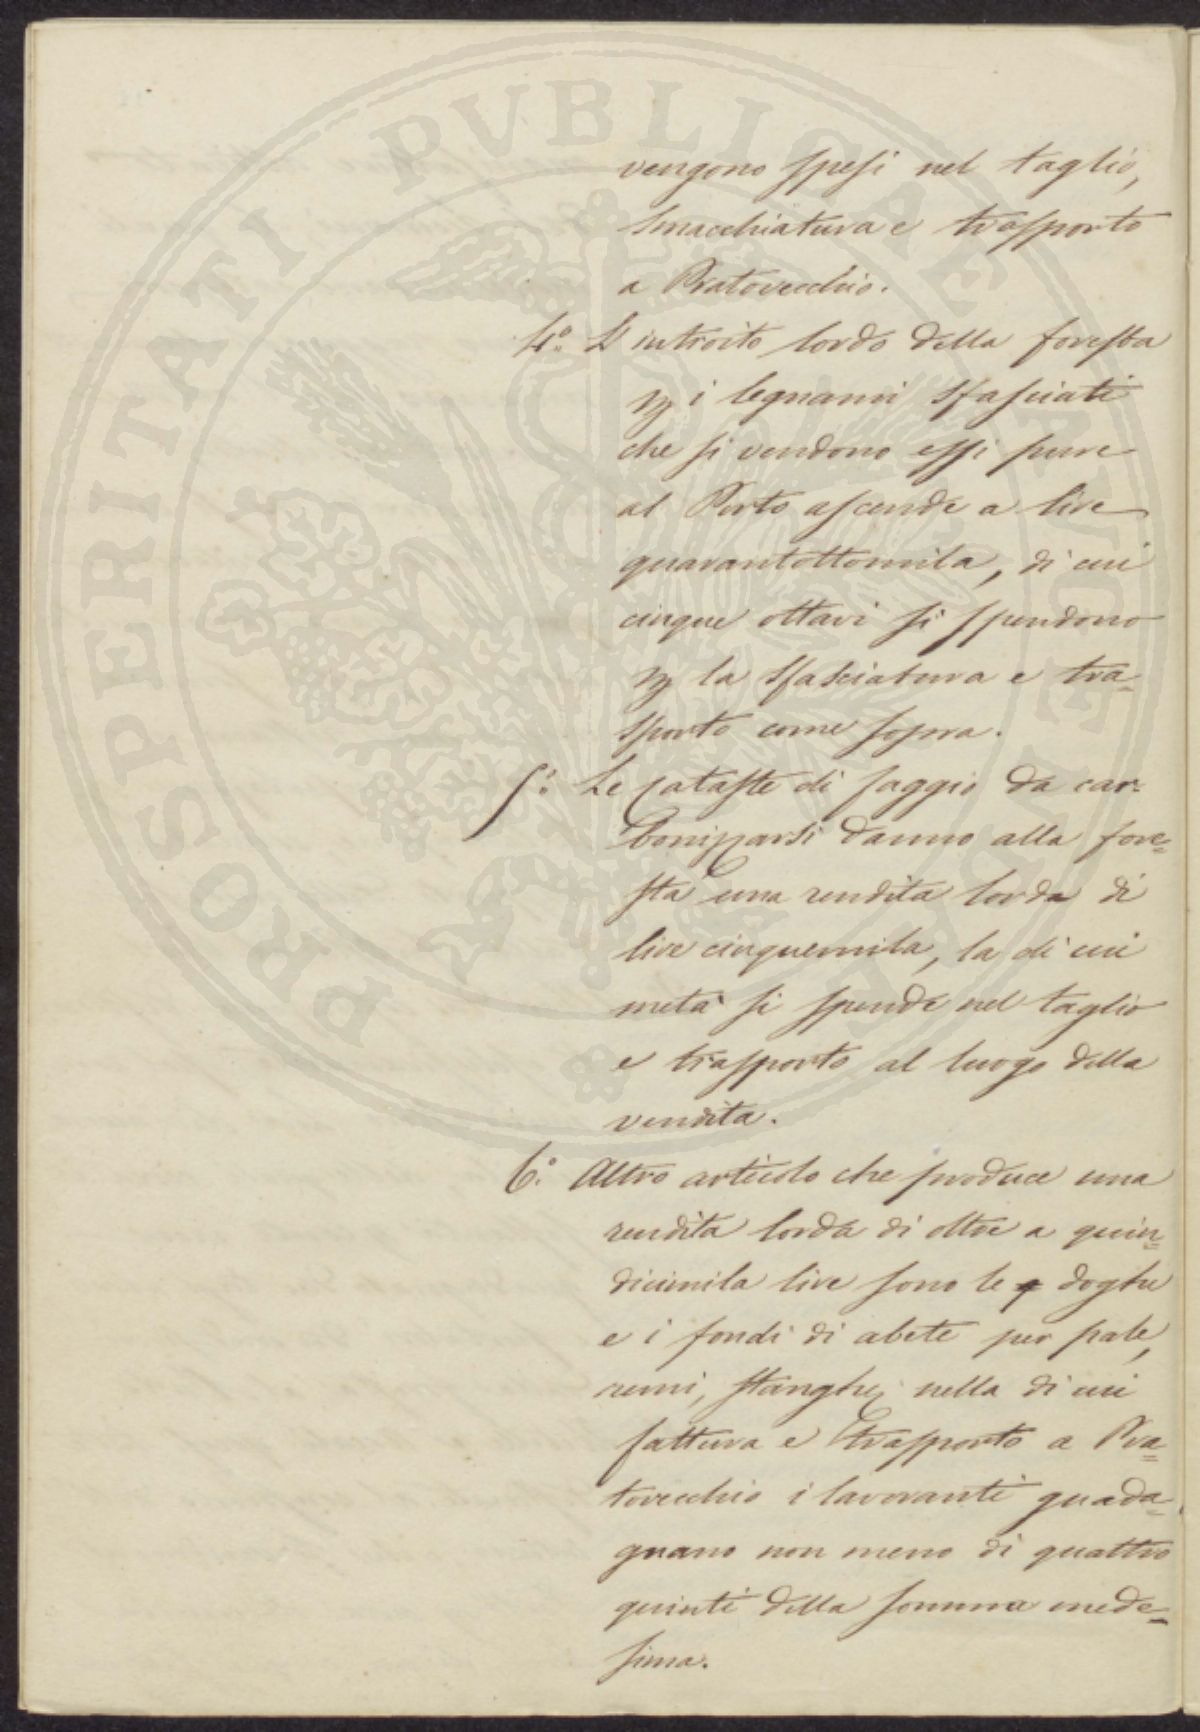 PROSPERITATI PVBLICAE AVGENDAE
vengono spesi nel taglio,
smacchiatura e trasporto
a Pratovecchio.
4.° L'introito lordo della foresta
p i legnami sfasciati
che si vendono essi pure
al Porto ascende a lire
quarantottomila, di cui
cinque ottavi si spendono
p la sfasciatura e tra-
sporto come sopra.
5.° Le cataste di faggio da car-
bonizzarsi danno alla fore=
sta una rendita lorda di
lire cinquemila, la di cui
metà si spende nel taglio
e trasporto al luogo della
vendita.
6.° Altro articolo che produce una
rendita lorda di oltre a quin=
dicimila lire sono le doghe
e i fondi di abete per pale,
remi, stanghe; nella di cui
fattura e trasporto a Pra=
tovecchio i lavoranti guada=
gnano non meno di quattro
quinti della somma mede=
sima.